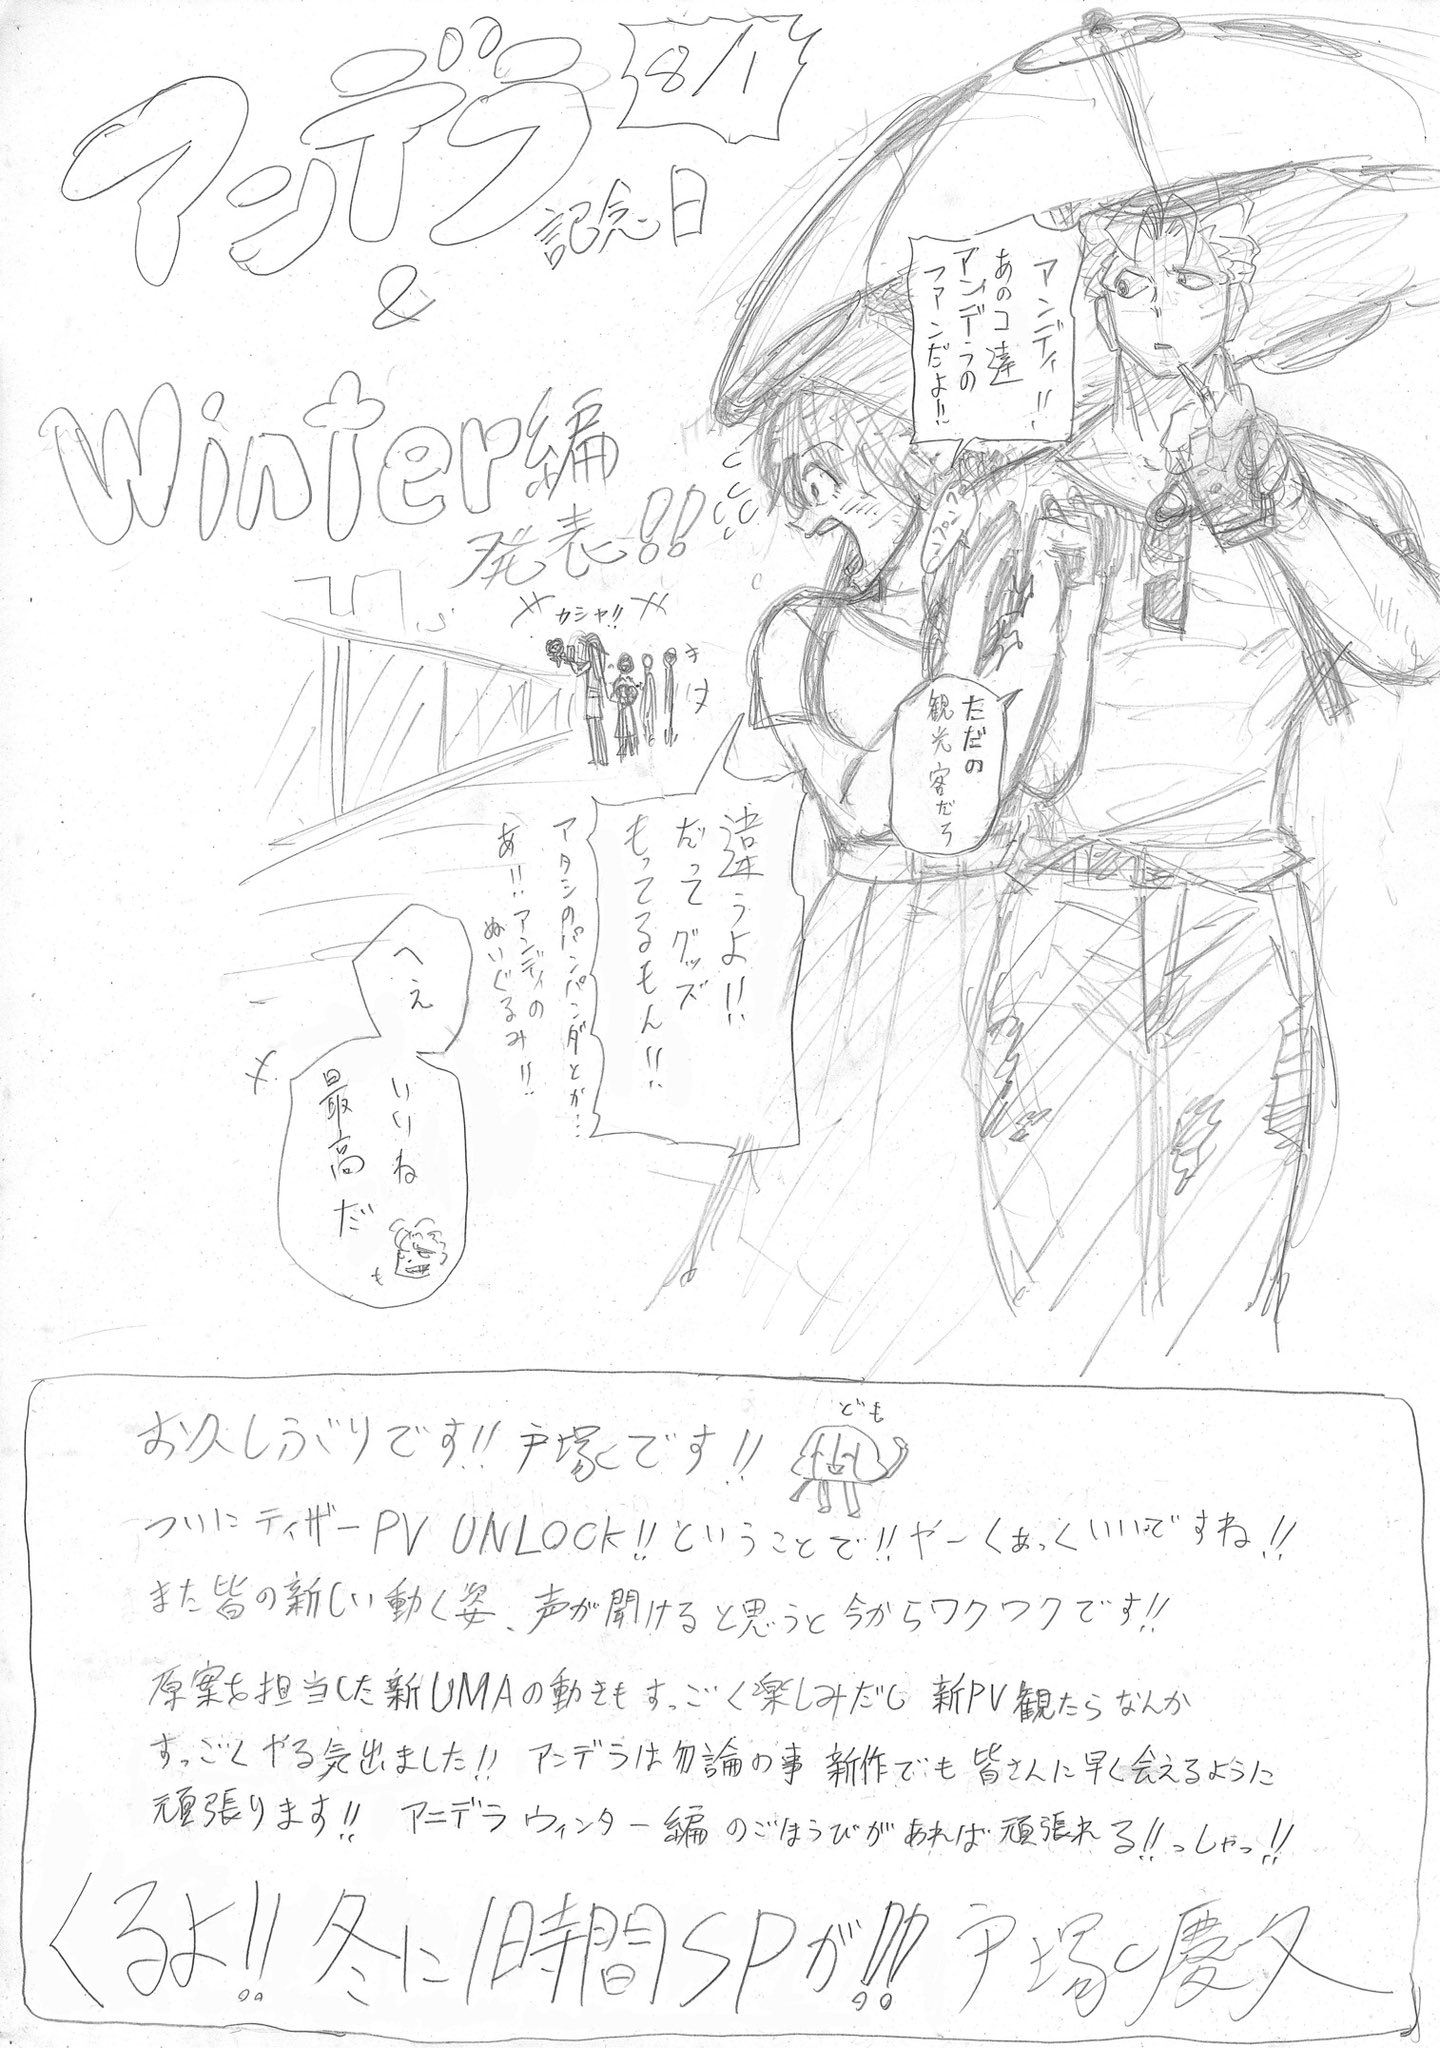 アンデラ
8/1
記念日
&
Winter編
発表!!
カシャ!!
アンディ!!
あのコ達
アンデラの
ファンだよ!!
ただの
観光客だろ
違うよ!!
だってグッズ
もってるもん!!
アタシのパンパンダとか…
あ!!アンディの
ぬいぐるみ!!
へぇ
いいね
最高だ
お久しぶりです!!戸塚です!!
ども
ついにティザーPV UNLOCK!!ということで!!やーくぁっくいいですね!!
また皆の新しい動く姿、声が聞けると思うと今からワクワクです!!
原案を担当した新UMAの動きもすっごく楽しみだし 新PV観たらなんか
すっごくやる気出ました!! アンデラは勿論の事 新作でも皆さんに早く会えるように
頑張ります!! アニデラ ウィンター編のごほうびがあれば頑張れる!!っしゃっ!!
くるよ!!冬に1時間SPが!!! 戸塚慶文